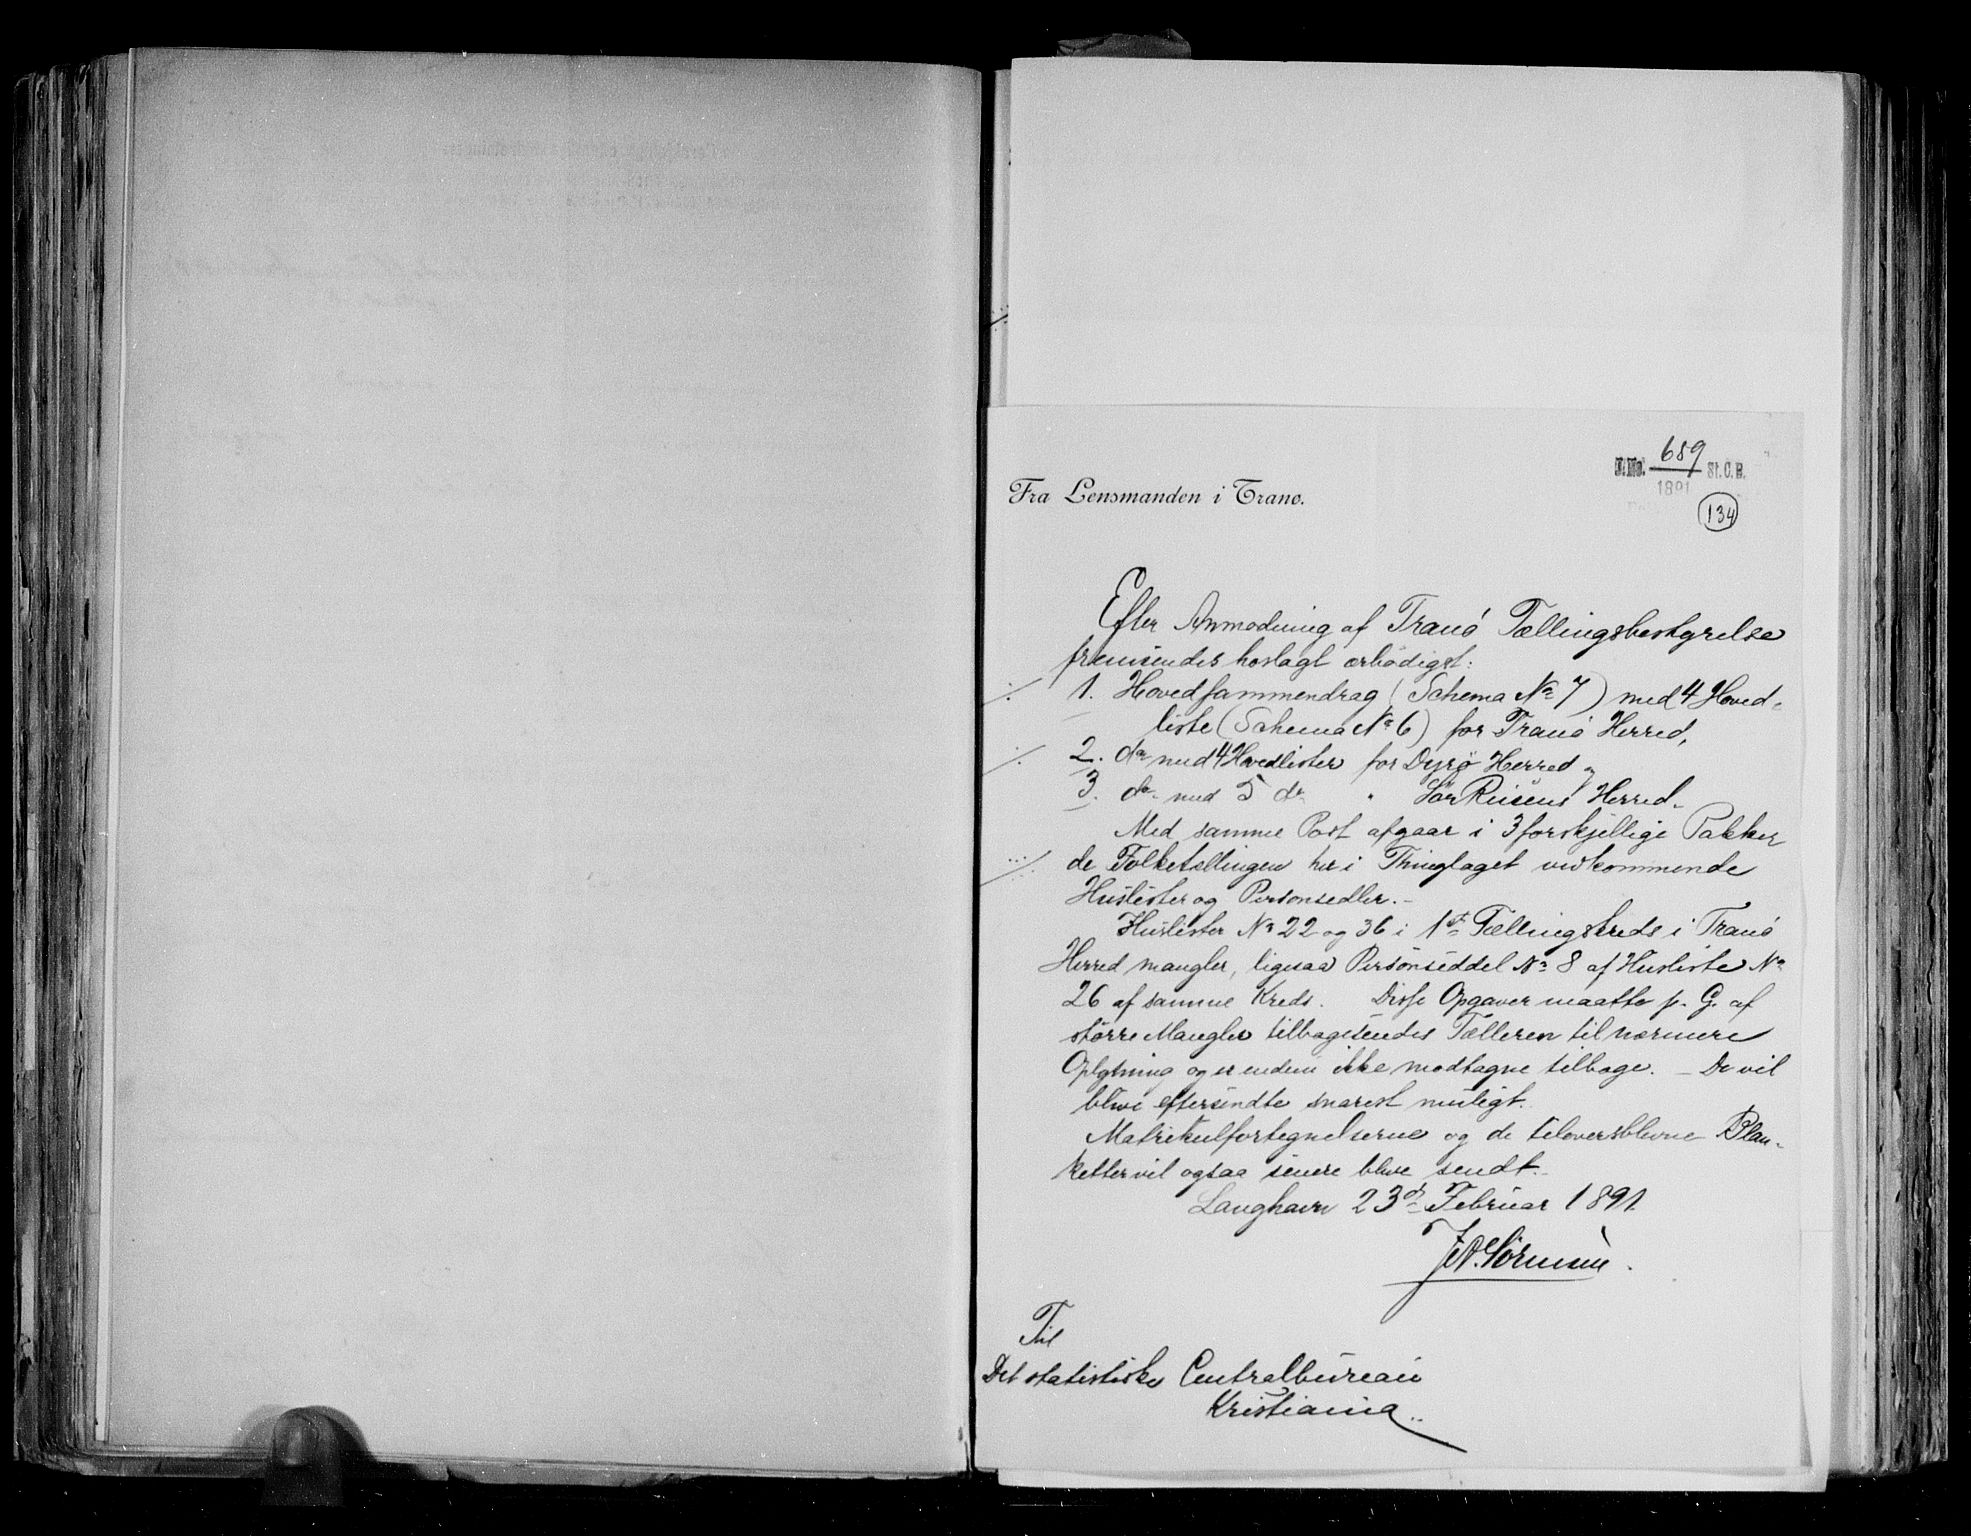 J.No. 689 St. C. B.
1891
134
Fra Lensmanden i Tranø.
Efter Anmodning af Tranö Tællingsbestyrelse
fremsendes hoslagt ærbødigst:
1. Hovedsammendrag (Schema No 7) med 4 Hoved-
liste (Schema No 6) for Tranö Herred,
2. do med 4 Hovedlister for Dyrö Herred og
3. do med 5 do " Sør Reisens Herred.
Med samme Post afgaar i 3 forskjellige Pakker
de Folketællingen her i Thinglaget vedkommende
Huslister og Personsedler. -
Huslister No 22 og 36 i 1st Tællingskreds i Tranö
Herred mangler, ligesaa Personseddel No 8 af Husliste No
26 af samme Kreds. Disse Opgaver maatte p. G. af
större Mangler tilbagesendes Tælleren til nærmere
Oplysning og er endnu ikke modtagne tilbage. - De vil
blive eftersendte snarest muligt.
Matrikulfortegnelserne og de tiloversblevne Blan-
ketter vil ogsaa senere blive sendt.
Langhavn 23d Februar 1891
Til
Det statistiske Centralbureau
Kristiania